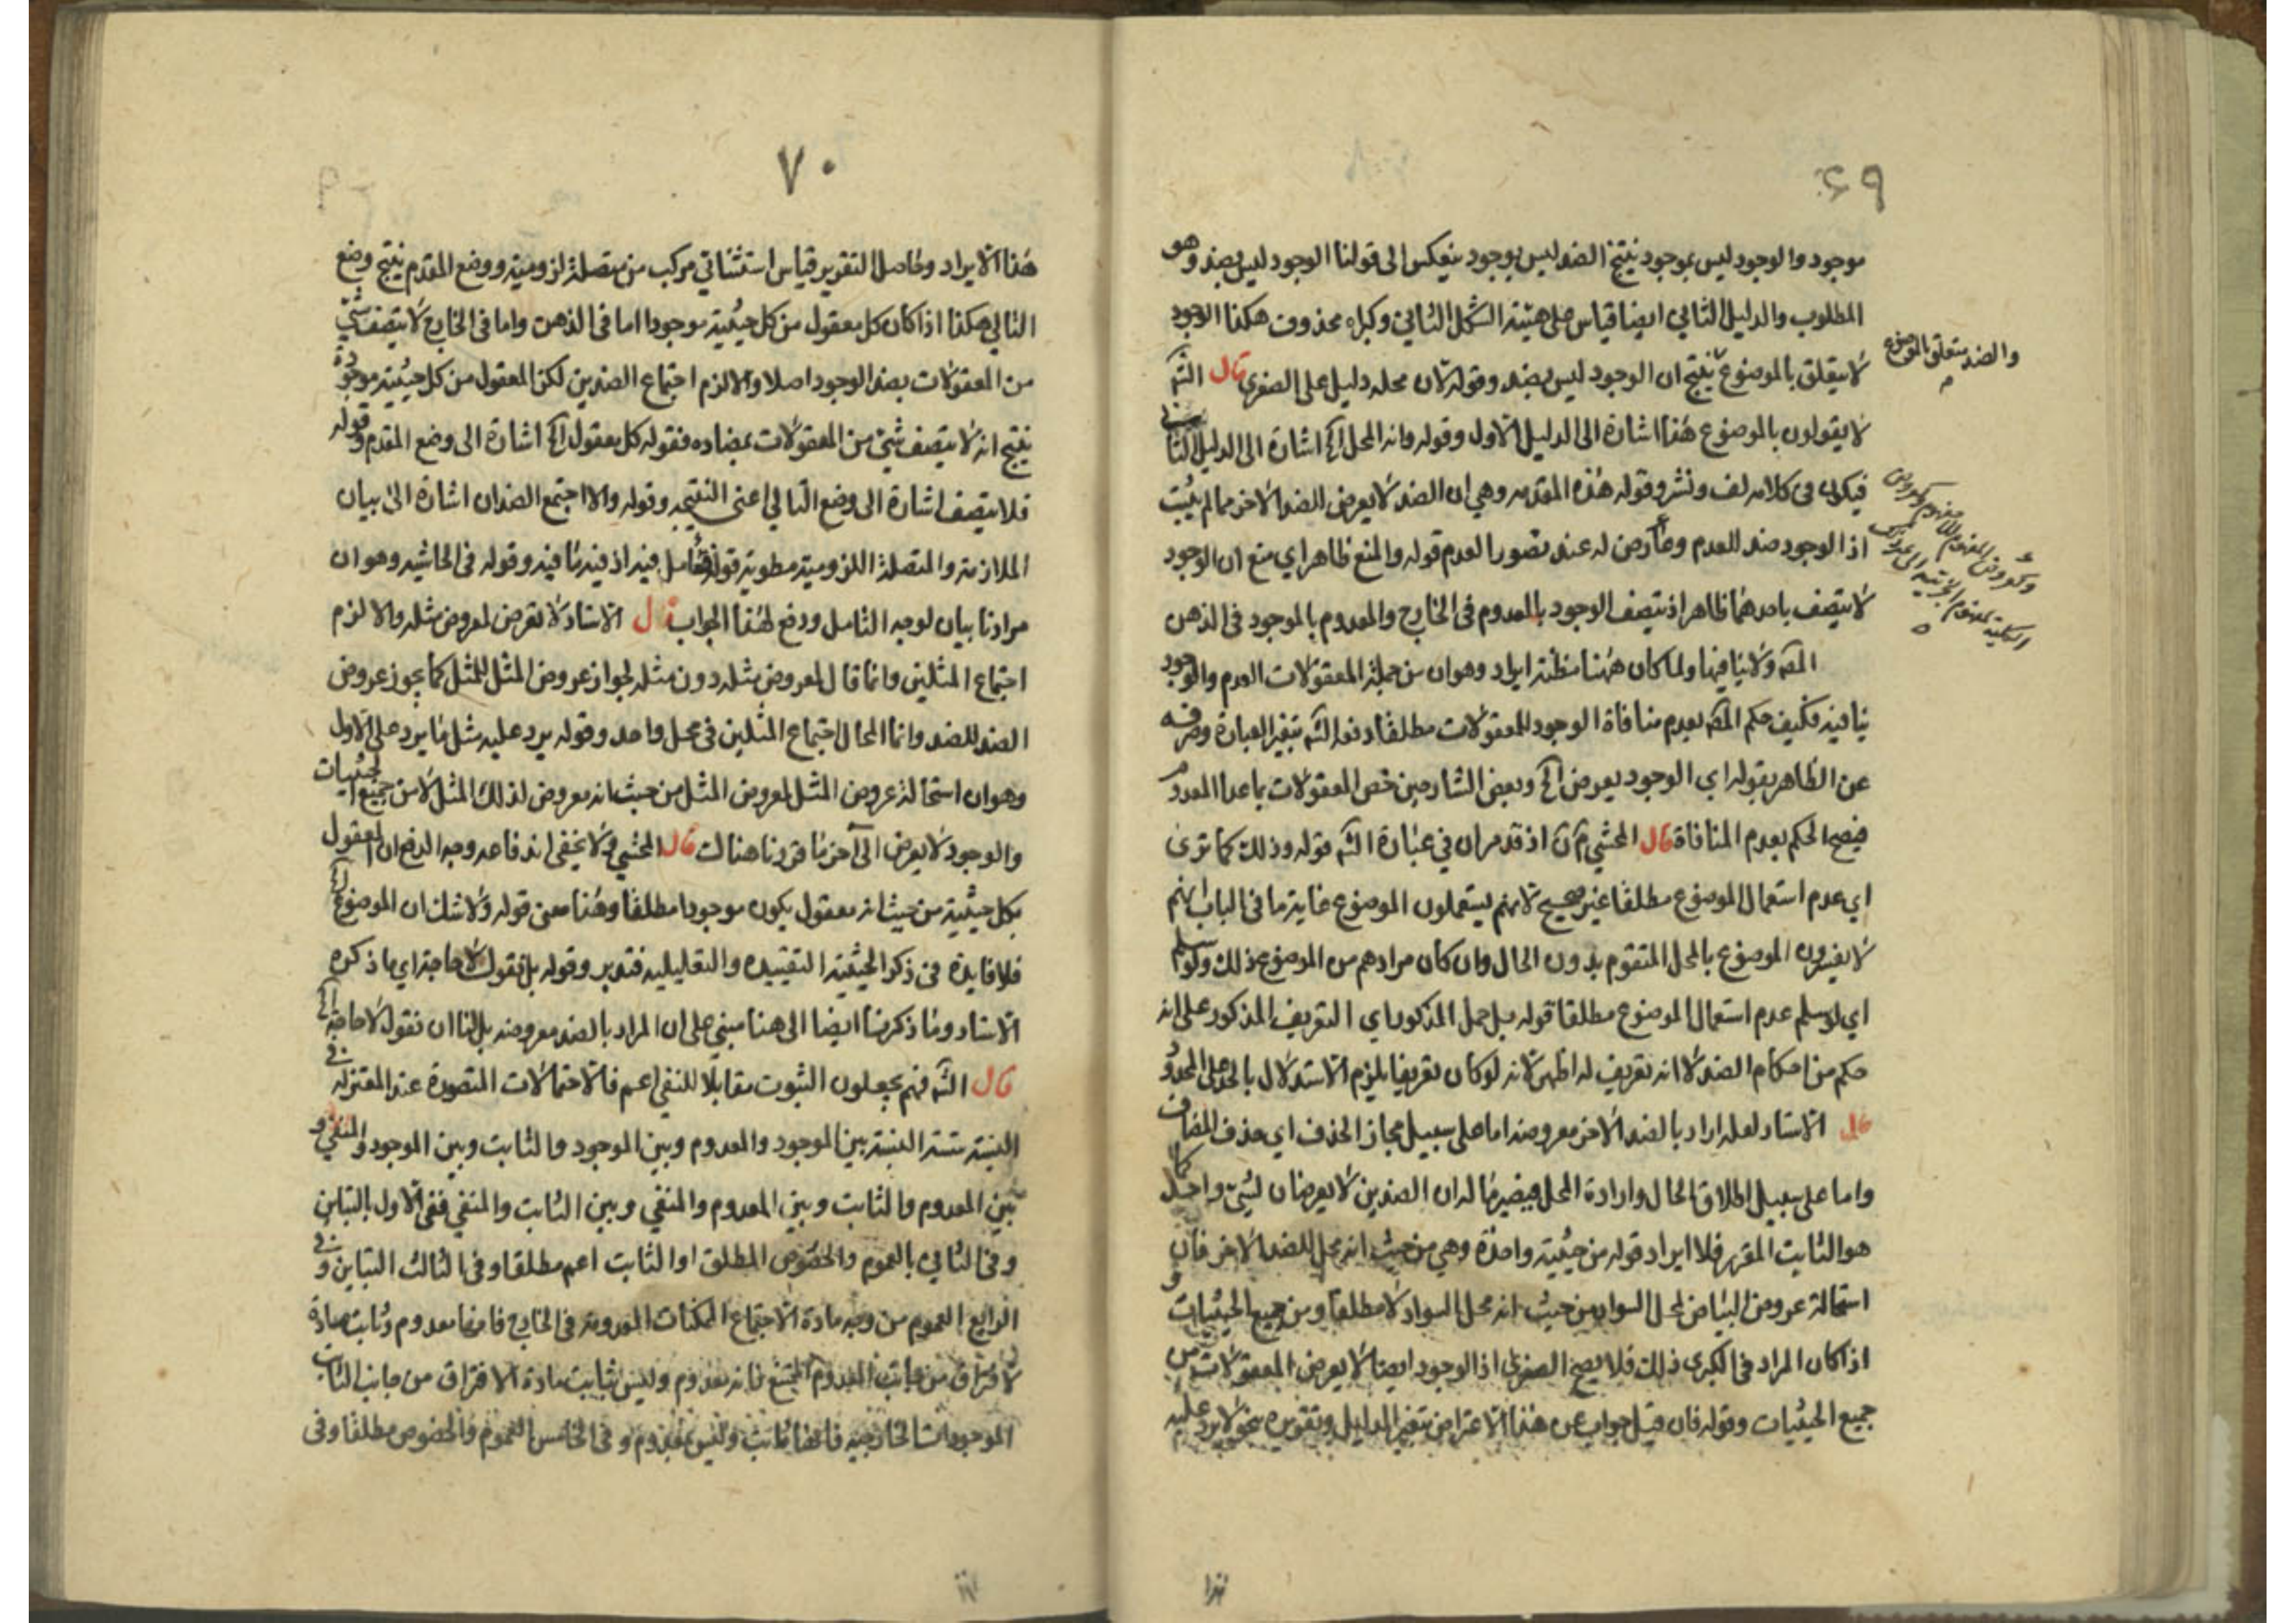 ٦٩
موجود والوجود ليس بموجود ينتج الضد ليس بوجود ينعكس الى قولنا الوجود ليس بضد وهو
المطلوب والدليل الثاني ايضا قياس على هيئة الشكل الثاني وكبراه محذوف هكذا الوجود
لا يتعلق بالموضوع ينتج ان الوجود ليس بضد وقوله لان محله دليل على الصغرى قال الشه
والضد متعلق بالموضوع
لا يقولون بالموضوع هذا اشارة الى الدليل الاول وقوله وانه المحل اﻟﺦ اشارة الى الدليل الثاني
فيكون في كلامه لف ونشر وقوله هذه المقدمه وهي ان الضد لا يعرض للضد الاخر مما لم يثبت
اذ الوجود ضد للعدم وعارض له عند تصور العدم قوله والمنع ظاهر اي منع ان الوجود
لا يتصف باحدهما ظاهر اذ يتصف الوجود بالمعدوم في الخارج والمعدوم بالموجود في الذهن
المصه ولا ينافيها ولما كان ههنا مظنة ايراد وهو ان من جملة المعقولات العدم والوجود
ينافيه فكيف حكم المصه بعدم منافاة الوجود للمعقولات مطلقا دفعه الشه بتغير العبارة وصرفه
عن الظاهر بقوله اي الوجود يعرض اﻟﺦ وبعض الشارحين خص المعقولات بما عدا المعدوم
فيصح الحكم بعدم المنافاة قال المحشي اذ قد مر ان في عبارة الشه قوله وذلك كما ترى
اي عدم استعمال الموضوع مطلقا غير صحيح لانهم يستعملون الموضوع غاية ما في الباب انهم
لا يفسرون الموضوع بالمحل المتقوم بدون الحال وان كان مرادهم من الموضوع ذلك ولو سلم
اي لو سلم عدم استعمال الموضوع مطلقا قوله بل حمل المذكور اي التعريف المذكور على انه
حكم من احكام الضد لا انه تعريف له اظهر لانه لو كان تعريفا يلزم الاستدلال بالحد على المحدود
قال الاستاد لعله اراد بالضد الاخر معروضه اما على سبيل مجاز الحذف اي حذف المضاف
واما على سبيل اطلاق الحال وارادة المحل فيصير ماله ان الضدين لا يعرضان لشيء واحد كما
هو الثابت المقرر فلا ايراد قوله من حيثية واحدة وهي من حيث انه محل للضد الاخر فان
استحالة عروض البياض لمحل السواد من حيث انه محل السواد لا مطلقا ومن جميع الحيثيات و
اذا كان المراد في الكبرى ذلك فلا يصح الصغرى اذ الوجود ايضا لا يعرض المعقولات من
جميع الحيثيات وقوله فان قيل جواب عن هذا الاعتراض بتغير الدليل وتقريره بنحو لا يرد عليه
هذا
٧٠
هذا الايراد وحاصل التقرير قياس استثنائي مركب من متصلة لزومية ووضع المقدم ينتج وضع
التالي هكذا اذا كان كل معقول من كل حيثية موجودا اما في الذهن واما في الخارج لا يتصف شيء
من المعقولات بضد الوجود اصلا والا لزم اجتماع الضدين لكن المعقول من كل حيثية موجودة
ينتج انه لا يتصف شيء من المعقولات بمضاده فقوله كل معقول اﻟﺦ اشارة الى وضع المقدم وقوله
فلا يتصف اشارة الى وضع التالي اعني النتيجه وقوله والا اجتمع الضدان اشارة الى بيان
الملازمة والمتصلة اللزومية مطوية قوله فتامل فيه اذ فيه ما فيه وقوله في الحاشيه وهو ان
مرادنا بيان لوجه التامل ودفع لهذا الجواب قال الاستاد لا تعرض لمعروض مثله والا لزم
اجتماع المثلين وانما قال لمعروض مثله دون مثله لجواز عروض المثل للمثل كما يجوز عروض
الضد للضد وانما المحال اجتماع المثلين في محل واحد وقوله يرد عليه مثل ما يرد على الاول
وهو ان استحالة عروض المثل لمعروض المثل من حيث انه معروض لذلك المثل لا من جميع الحيثيات
والوجود لا يعرض الى آخر ما قررنا هنالك قال المحشي ولا يخفى اندفاعه وجه الدفع ان المعقول
بكل حيثية من حيث انه معقول يكون موجودا مطلقا وهذا معنى قوله ولا شك ان الموضوع
فلا فايدة في ذكر الحيثية التقييديه والتعليليه فتدبر وقوله بل نقول لا حاجة اي ما ذكره
الاستاد وما ذكرنا ايضا الى هنا مبني على ان المراد بالضد معروضه بل لنا ان نقول لا حاجة
قال الشه فهم يجعلون الثبوت مقابلا للنفي اعم فالاحتمالات المتصورة عند المعتزله في
النسبة ستة النسبة بين الموجود والمعدوم وبين الموجود والثابت وبين الموجود والمنفي و
بين المعدوم والثابت وبين المعدوم والمنفي وبين الثابت والمنفي ففي الاول بالتباين
وفي الثاني بالعموم والخصوص المطلق اذ الثابت اعم مطلقا وفي الثالث التباين وفي
الرابع العموم من وجه مادة الاجتماع الممكنات المعدومة في الخارج فانها معدوم وثابت مادة
الافتراق من جانب المعدوم الممتنع فانه معدوم وليس بثابت مادة الافتراق من جانب الثابت
الموجودات الخارجيه فانها ثابت وليس بمعدوم وفي الخامس العموم والخصوص مطلقا وفي